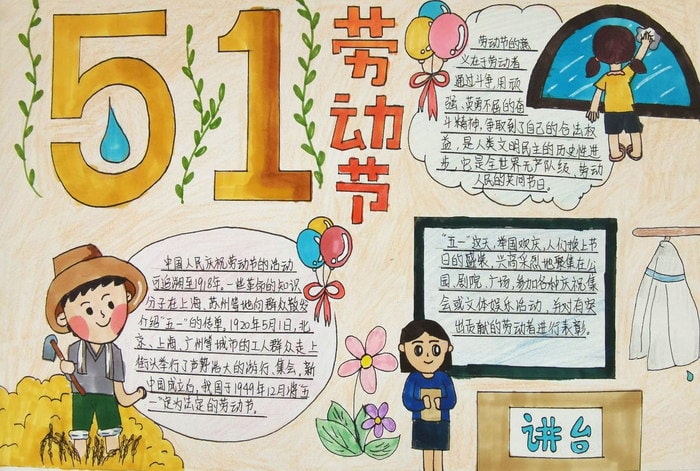 51
劳动节
劳动节的意
义在于劳动者
通过斗争,用顽
强、英勇不屈的奋
斗精神,争取到了自己的合法权
益,是人类文明民主的历史性进
步,它是全世界无产阶级、劳动
人民的共同节日。
中国人民庆祝劳动节的活动
可追溯至1918年,一些革命的知识
分子在上海、苏州等地向群众散发
介绍"五一"的传单,1920年5月1日,北
京、上海、广州等城市的工人群众走上
街头举行了声势浩大的游行、集会。新
中国成立后,我国于1949年12月将"五
一"定为法定的劳动节。
"五一"这天,举国欢庆,人们换上节
日的盛装,兴高采烈地聚集在公
园、剧院、广场,参加各种庆祝集
会或文体娱乐活动,并对有突
出贡献的劳动者进行表彰。
讲台